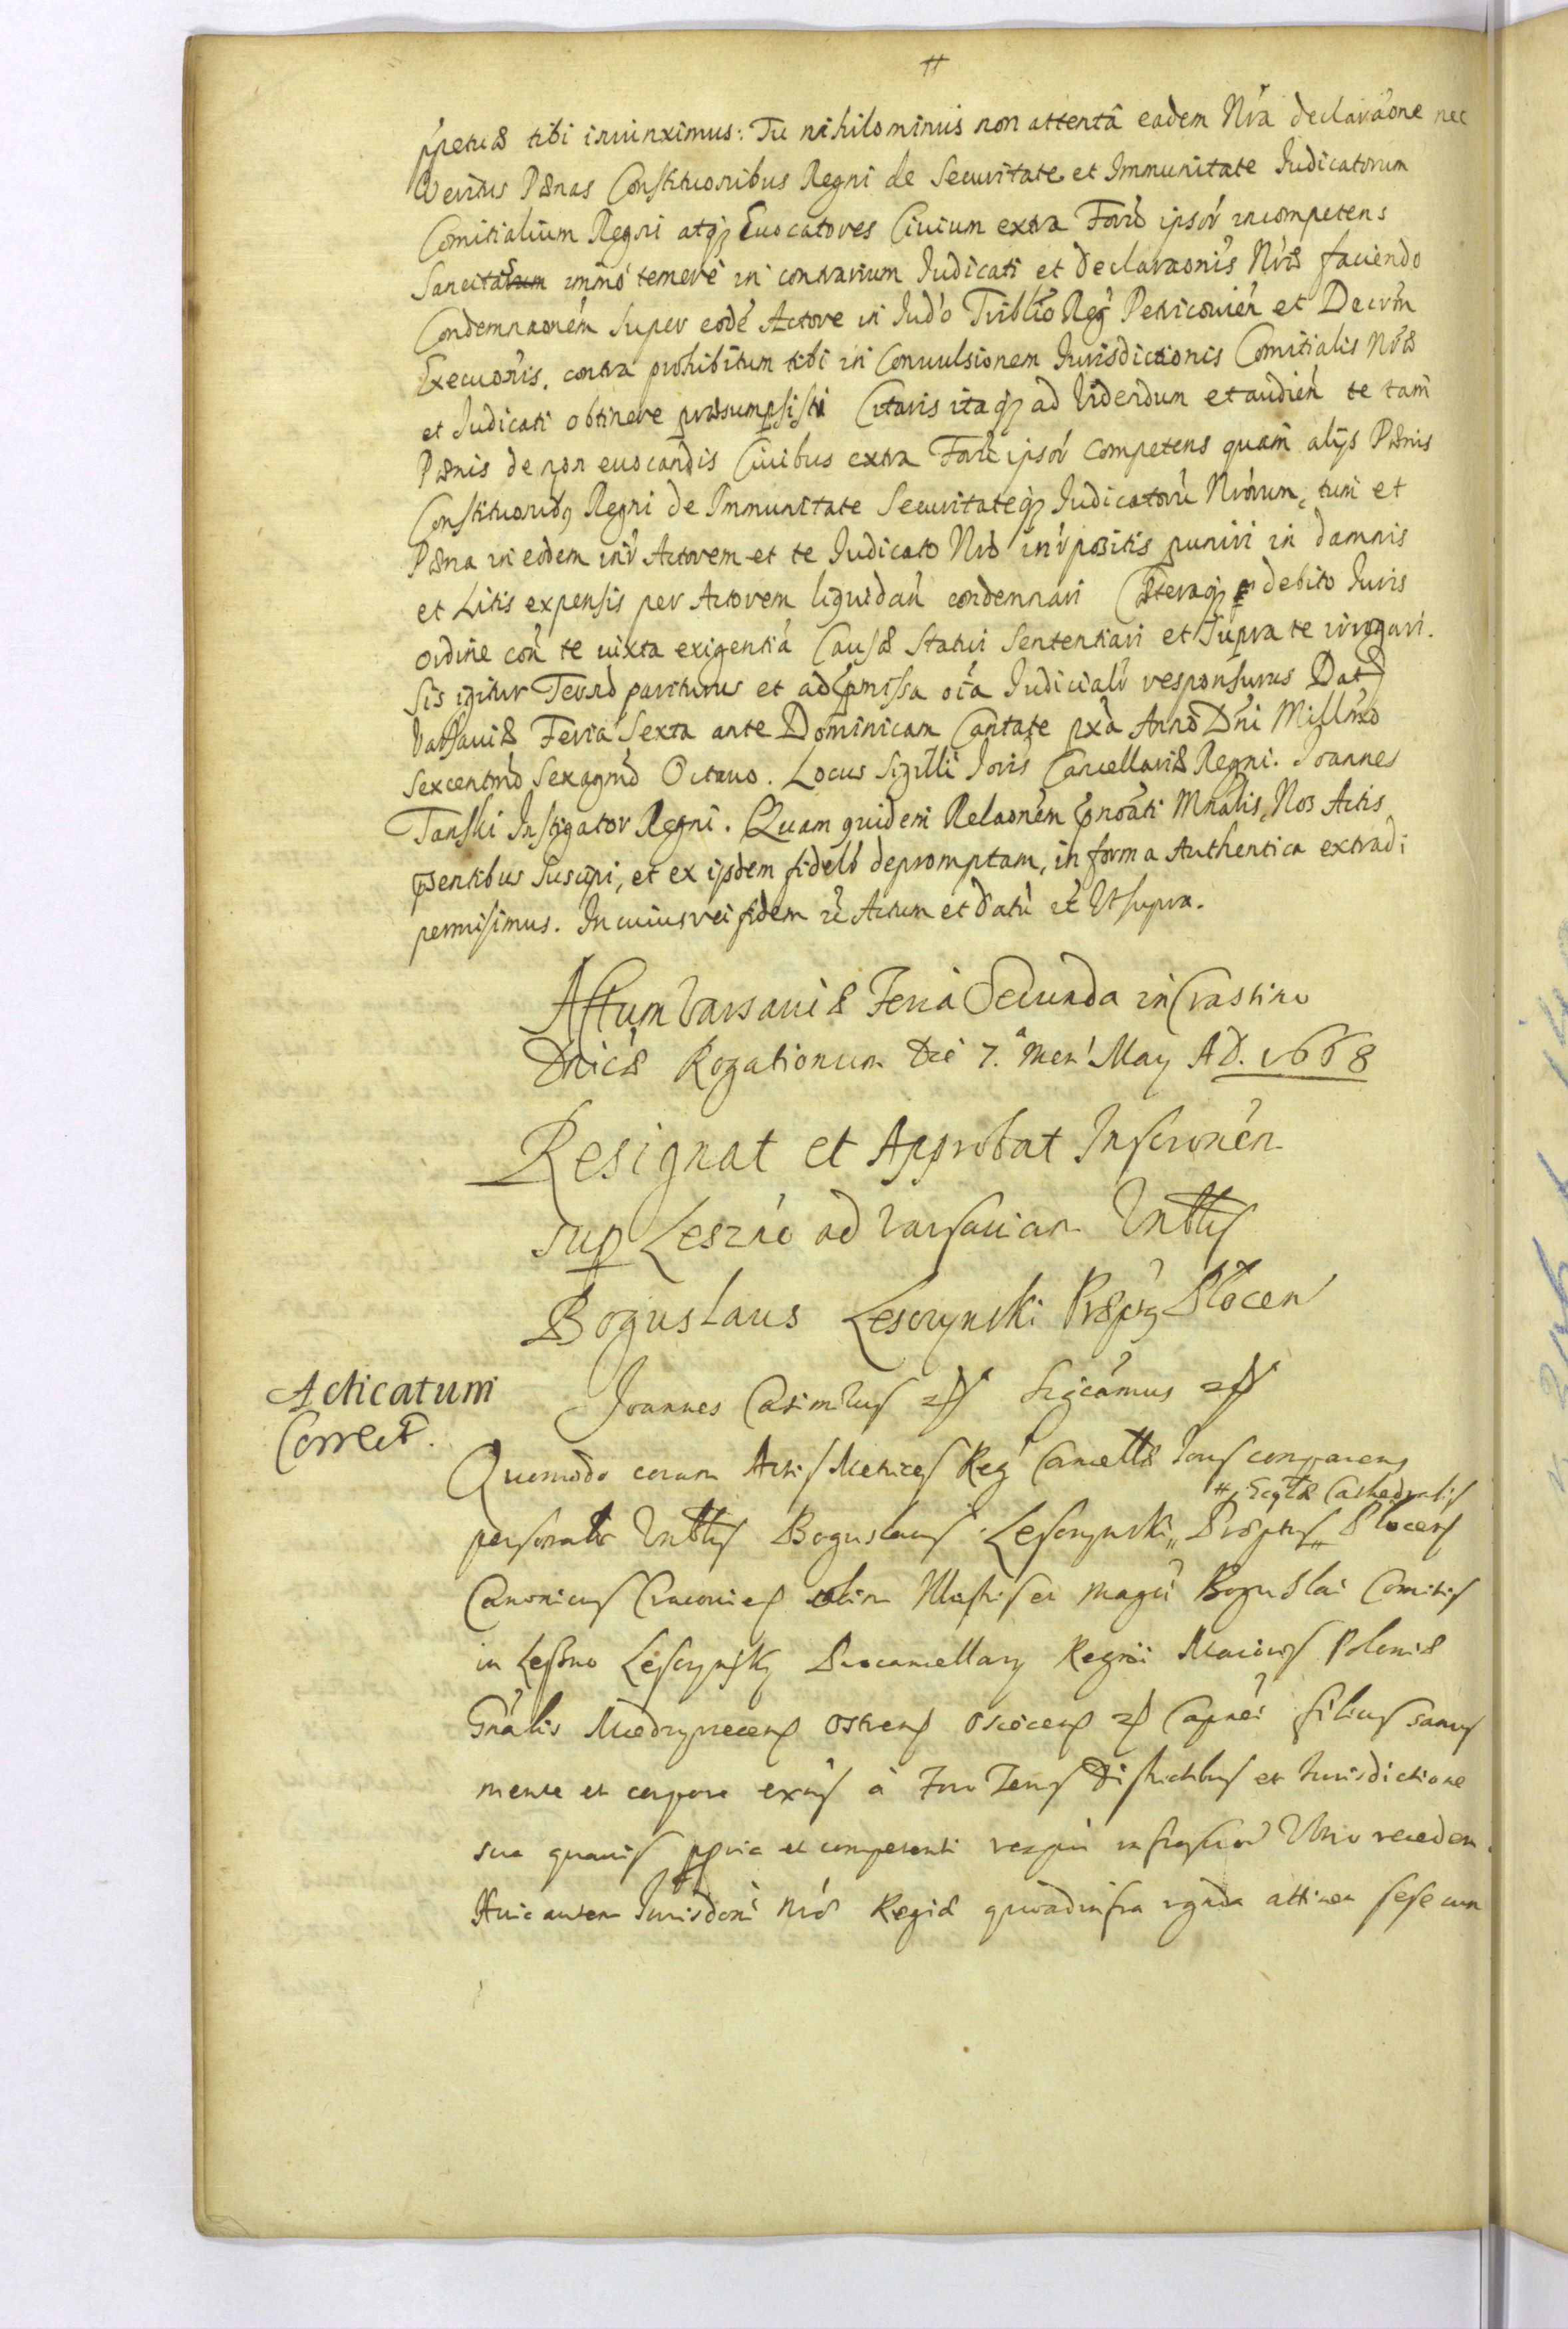 #
ppetuæ tibi iniunximus: Tu nihilominus non attentâ eadem Nrâ declaraone nec
Veritus Pænas Constituonibus Regni de Securitate et Immunitate Iudicatorum
Comitialium Regni atq Euocatores Ciuium extra Forũ ipsor incompetens
Sancitas immò temerè in contrarium Iudicati et declaraonis Nræ faciendo
Condemnaonem Super eodẽ Actore in Iudo Triblio Reg Petricouien et Decrm
Execuonis, contra prohibitum tibi in Conuulsionem Iurisdictionis Comitialis Nræ
et Iudicati obtinere præsumpsisti Citaris itaq ad Videndum et audien te tam
Pænis de non euocandis Ciuibus extra Forũ ipsor Competens quam alijs Pænis
Constituonibq Regni de Immunitate Securitateq Iudicatorũ Nrorum, tum et
Pæna in eodem intr Actorem et te Iudicato Nro intrpositis puniri in damnis
et Litis expensis per Actorem liquidan condemnari Cæteraq debito Iuris
ordine con te iuxta exigentiã Causæ Statui Sententiari et Supra te irrogari.
Sis igitur Termno pariturus et ad pmissa oia Iudicialr responsurus Dat
Varsauiæ Feria Sexta ante Dominicam Cantate pxa Anno Dni Millmo
Sexcentmo Sexagmo Octauo. Locus Sigilli Ioris Cancellariæ Regni. Ioannes
Tanski Instigator Regni. Quam quidem Relaonem pnoati Mnalis, Nos Actis
psentibus Suscipi, et ex ijsdem fidelr depromptam, in forma Authentica extradi
permisimus. In cuius rei fidem rc Actum et datũ rc Ut supra.
Actum Varsauiæ Feria Secunda in Crastino
Dnicæ Rogationum Die 7.a Men May A D. 1668
Resignat et Approbat Inscronem
sup Leszno ad Varsauiam Vnblis
Boguslaus Lesczynski Præptq Plocen
Acticatum
Correct.
Ioannes Casimirus rc Sigcamus rc
Quomodo coram Actis Metrices Reg Cancellæ Ioris comparens
# Ecclæ Cathedralis
personalr Vnblis Boguslaus Lesczynski Præptus Plocens
Canonicus Cracouiens olim Illustris et Magci Boguslai Comitis
in Leszno Lesczynsky Procancellary Regni Maioris Poloniæ
Gnalis Miedzyrzecens Ostrens Osiecens rc Capnei filius sanus
mente et corpore exns à Foro Terris Districtibus et Iurisdictione
sua quauis ppria et competenti recedn.
Huic autem Iurisdoni Nræ Regiæ quoad infra attinen sese cum